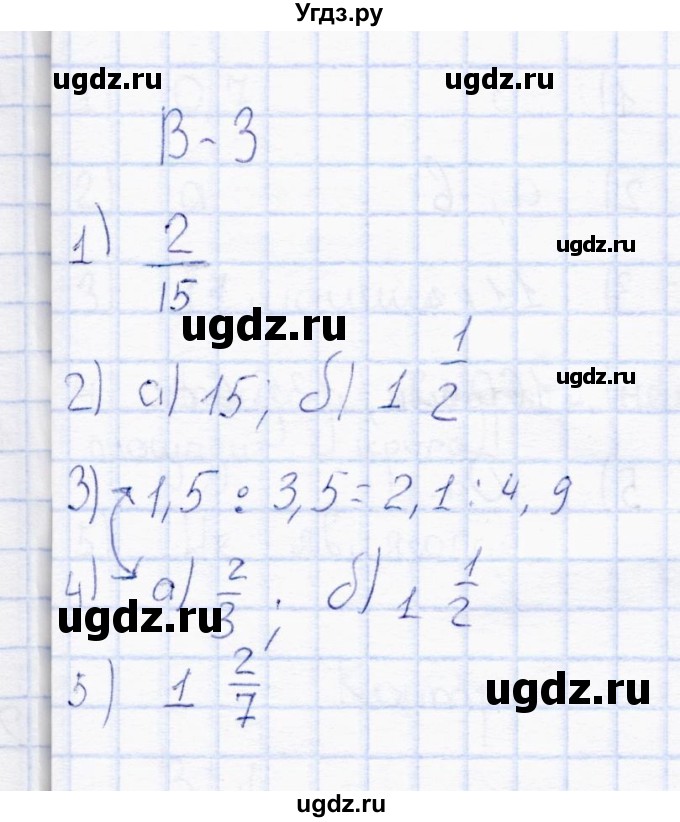 Угдз.ру
ugdz.ru ugdz.ru
В-3
1) 2/15
ugdz.ru
ugdz.ru
2) а) 15; б) 1 1/2
ugdz.ru
3) 1,5 : 3,5 = 2,1 : 4,9
4) а) 2/3; б) 1 1/2
ugdz.ru
5) 1 2/7
ugdz.ru
ugdz.ru